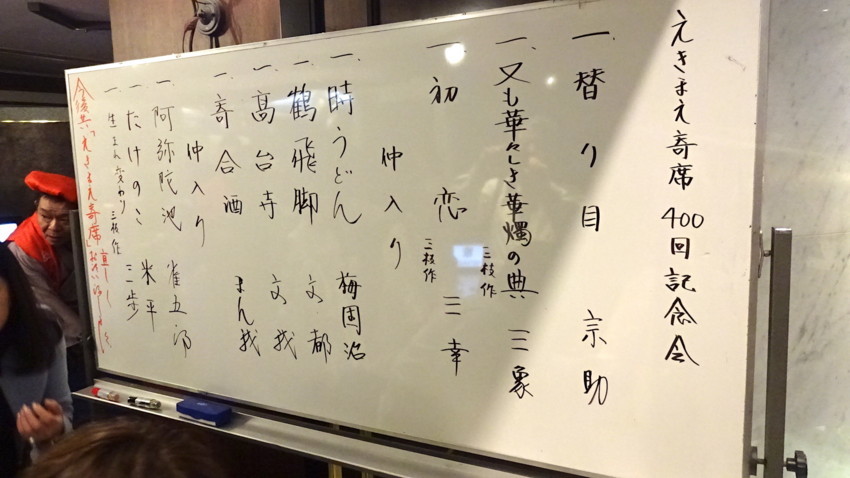 えきまえ寄席 400回記念会
一、替り目 宗助
一、又も華々しき華燭の典 三枝作 三象
一、初恋 三枝作 三幸
仲入り
一、時うどん 梅團治
一、鶴飛脚 文都
一、高台寺 文我
一、寄合酒 まん我
仲入り
一、阿弥陀池 雀五郎
一、たけのこ 米平
一、生まれ変わり 三枝作 三歩
今後共「えきまえ寄席」